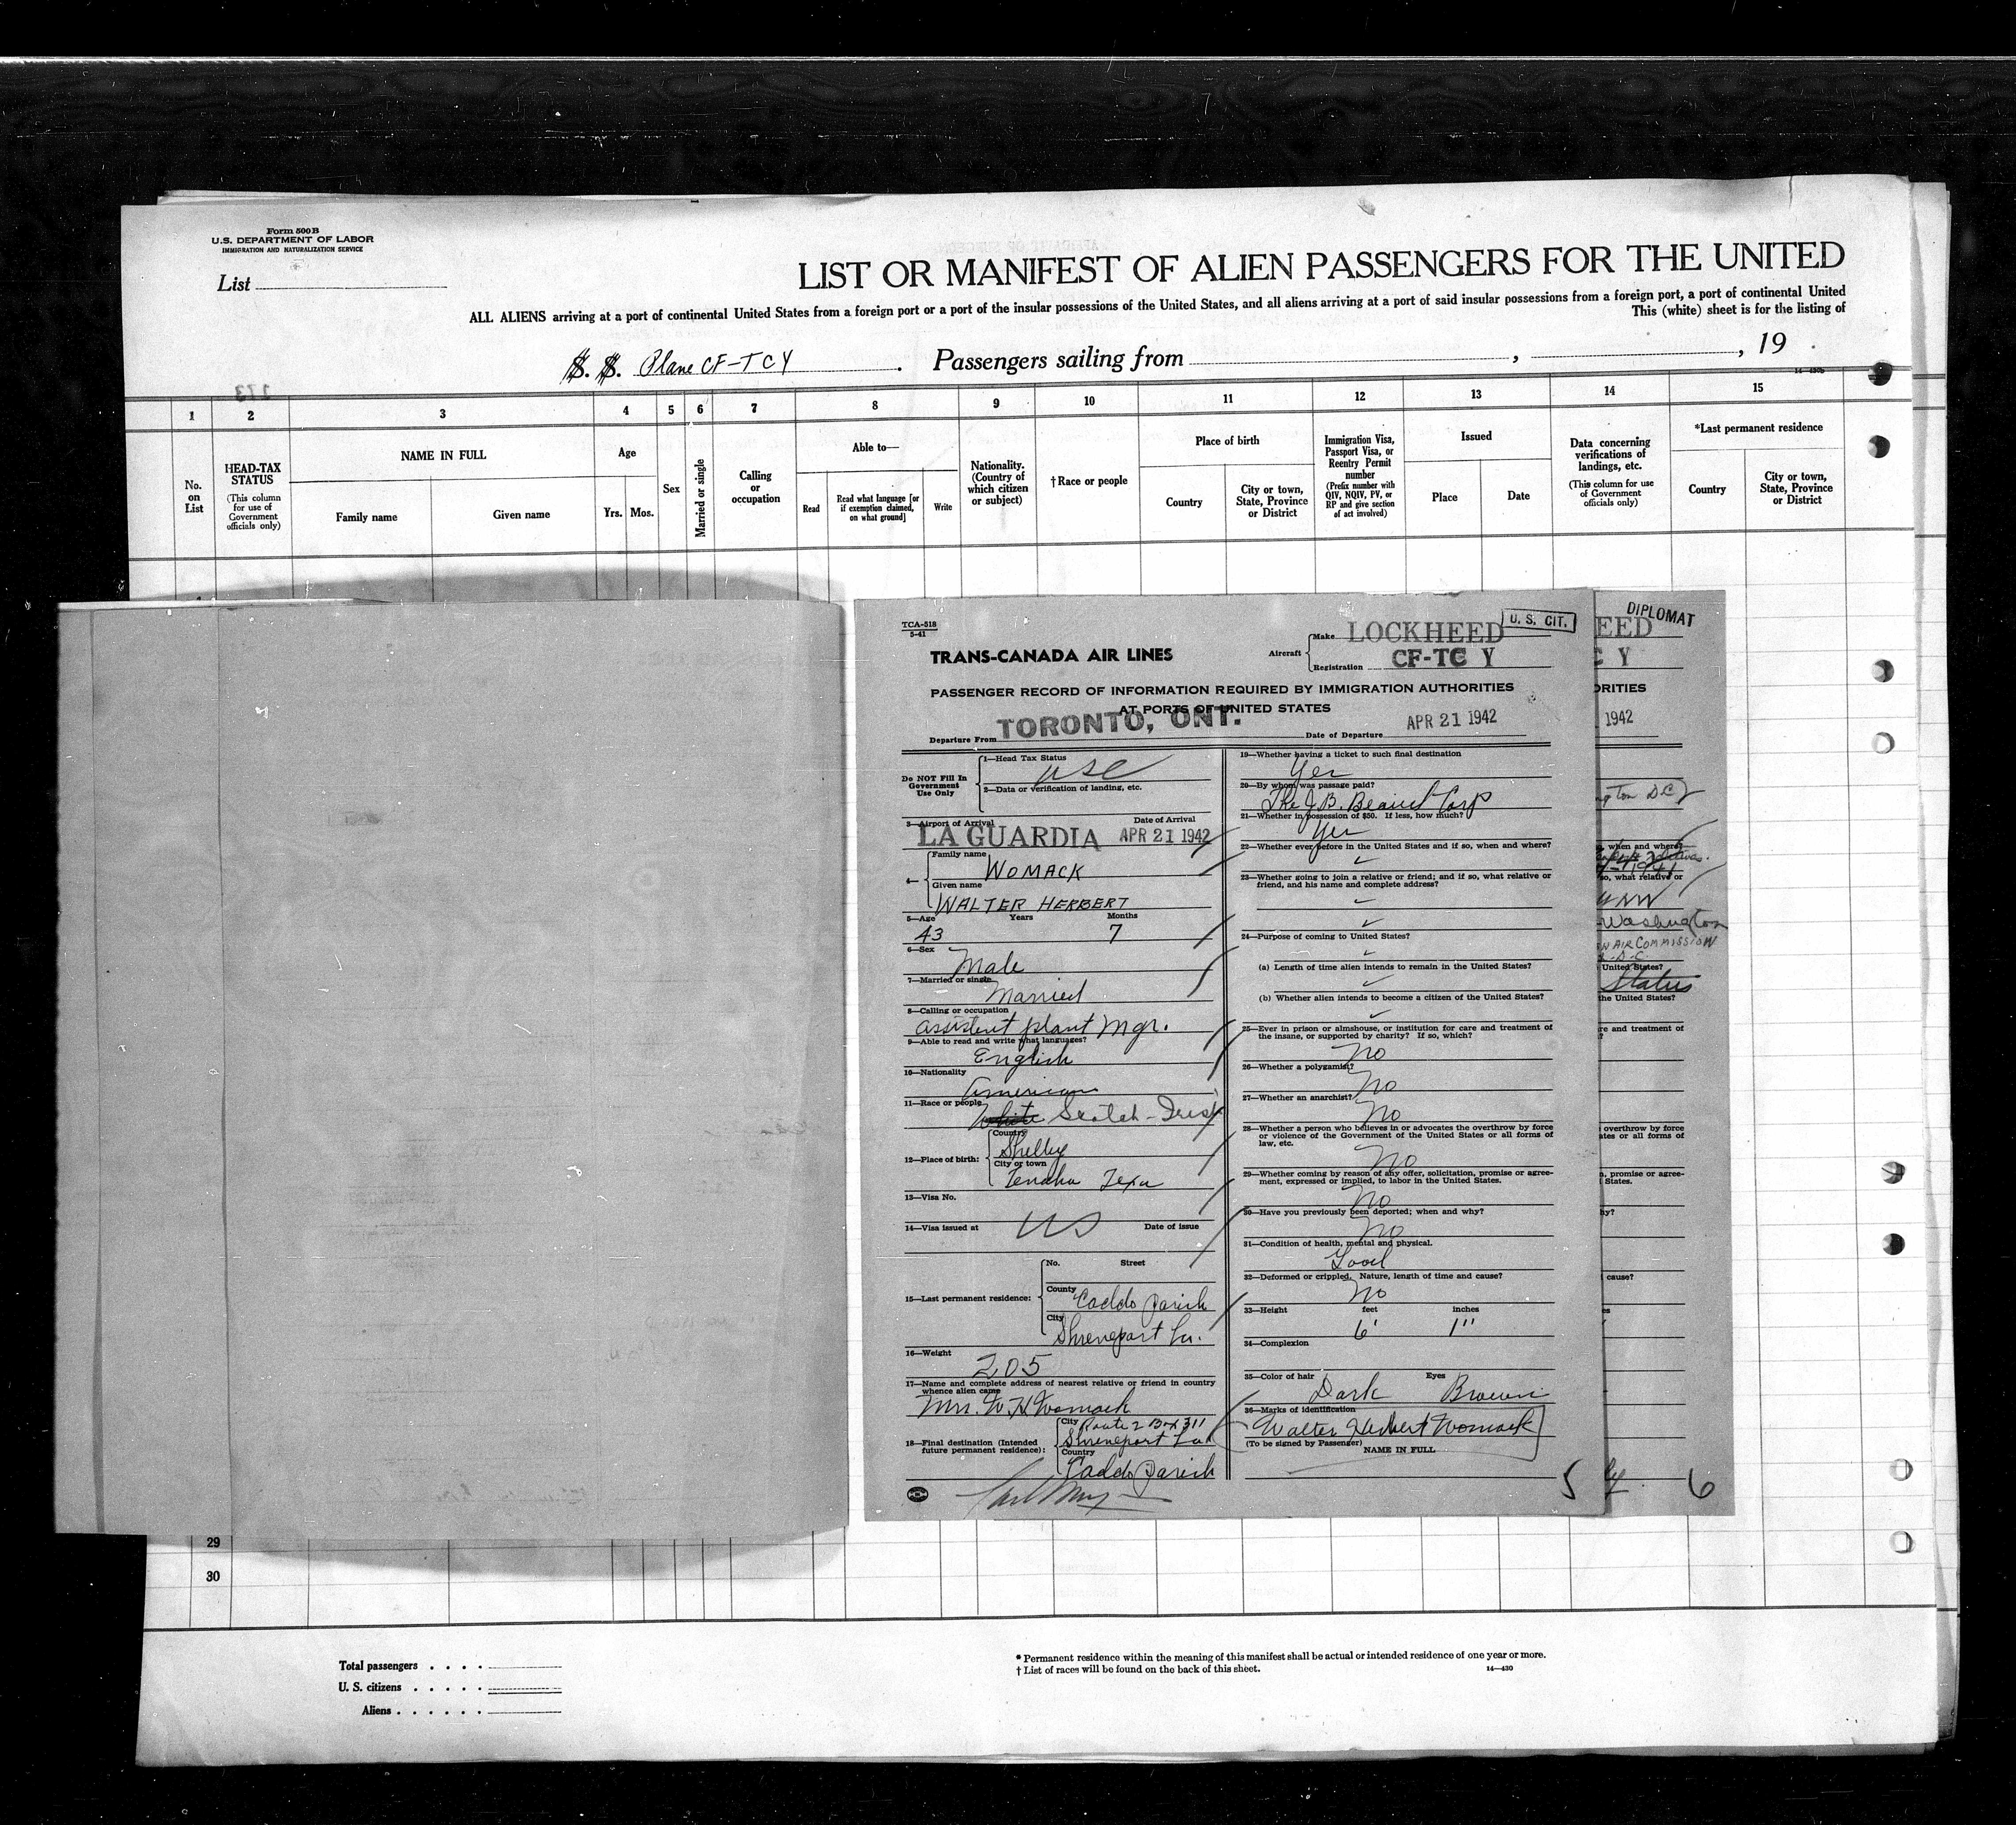 Form 500B
U.S. DEPARTMENT OF LABOR
IMMIGRATION AND NATURALIZATION SERVICE
List
LIST OR MANIFEST OF ALIEN PASSENGERS FOR THE UNITED
ALL ALIENS arriving at a port of continental United States from a foreign port or a port of the insular possessions of the United States, and all aliens arriving at a port of said insular possessions from a foreign port, a port of continental United
This (white) sheet is for the listing of
S. S. Plane CF-TCY . Passengers sailing from , , 19
173
14—430b
1 2 3 4 5 6 7 8 9 10 11 12 13 14 15
No. on List
HEAD-TAX STATUS
(This column for use of Government officials only)
NAME IN FULL
Family name Given name
Age
Yrs. Mos.
Sex
Married or single
Calling or occupation
Able to—
Read
Read what language [or if exemption claimed, on what ground]
Write
Nationality. (Country of which citizen or subject)
†Race or people
Place of birth
Country
City or town, State, Province or District
Immigration Visa, Passport Visa, or Reentry Permit number
(Prefix number with QIV, NQIV, PV, or RP and give section of act involved)
Issued
Place Date
Data concerning verifications of landings, etc.
(This column for use of Government officials only)
*Last permanent residence
Country
City or town, State, Province or District
TCA-518
5-41
TRANS-CANADA AIR LINES
Aircraft
Make LOCKHEED
U. S. CIT.
Registration CF-TC Y
PASSENGER RECORD OF INFORMATION REQUIRED BY IMMIGRATION AUTHORITIES
AT PORTS OF UNITED STATES
Departure From TORONTO, ONT. Date of Departure APR 21 1942
Do NOT Fill In Government Use Only
1—Head Tax Status
USC
2—Data or verification of landing, etc.
3—Airport of Arrival Date of Arrival
LA GUARDIA APR 21 1942
4—
Family name
WOMACK
Given name
WALTER HERBERT
5—Age Years Months
43 7
6—Sex
Male
7—Married or single
Married
8—Calling or occupation
assistent plant Mgr.
9—Able to read and write what languages?
English
10—Nationality
American
11—Race or people
White Scotch-Irish
12—Place of birth:
Country
Shelby
City or town
Tenaha Texa
13—Visa No.
14—Visa issued at Date of issue
US
15—Last permanent residence:
No. Street
County
Caddo Parish
City
Shreveport La.
16—Weight
205
17—Name and complete address of nearest relative or friend in country whence alien came
Mrs. W. H Womack
18—Final destination (Intended future permanent residence):
City Route 2 Box 311
Shreveport La
Country
Caddo Parish
19—Whether having a ticket to such final destination
Yes
20—By whom was passage paid?
The J. B. Beaird Corp
21—Whether in possession of $50. If less, how much?
Yes
22—Whether ever before in the United States and if so, when and where?
23—Whether going to join a relative or friend; and if so, what relative or friend, and his name and complete address?
24—Purpose of coming to United States?
(a) Length of time alien intends to remain in the United States?
(b) Whether alien intends to become a citizen of the United States?
25—Ever in prison or almshouse, or institution for care and treatment of the insane, or supported by charity? If so, which?
No
26—Whether a polygamist?
No
27—Whether an anarchist?
No
28—Whether a person who believes in or advocates the overthrow by force or violence of the Government of the United States or all forms of law, etc.
No
29—Whether coming by reason of any offer, solicitation, promise or agreement, expressed or implied, to labor in the United States.
No
30—Have you previously been deported; when and why?
No
31—Condition of health, mental and physical.
Good
32—Deformed or crippled. Nature, length of time and cause?
No
33—Height feet inches
6' 1"
34—Complexion
35—Color of hair Eyes
Dark Brown
36—Marks of identification
Walter Herbert Womack
(To be signed by Passenger) NAME IN FULL
5
DIPLOMAT
EED
C Y
ORITIES
1942
gton DC
, when and where?
1941
so, what relative or
Washington
N AIR COMMISSION
D.C.
United States?
States
the United States?
re and treatment of
?
overthrow by force
ates or all forms of
n, promise or agree-
States.
hy?
cause?
es
6
29
30
Total passengers . . . .
U. S. citizens . . . . .
Aliens . . . . . .
* Permanent residence within the meaning of this manifest shall be actual or intended residence of one year or more.
† List of races will be found on the back of this sheet. 14—430